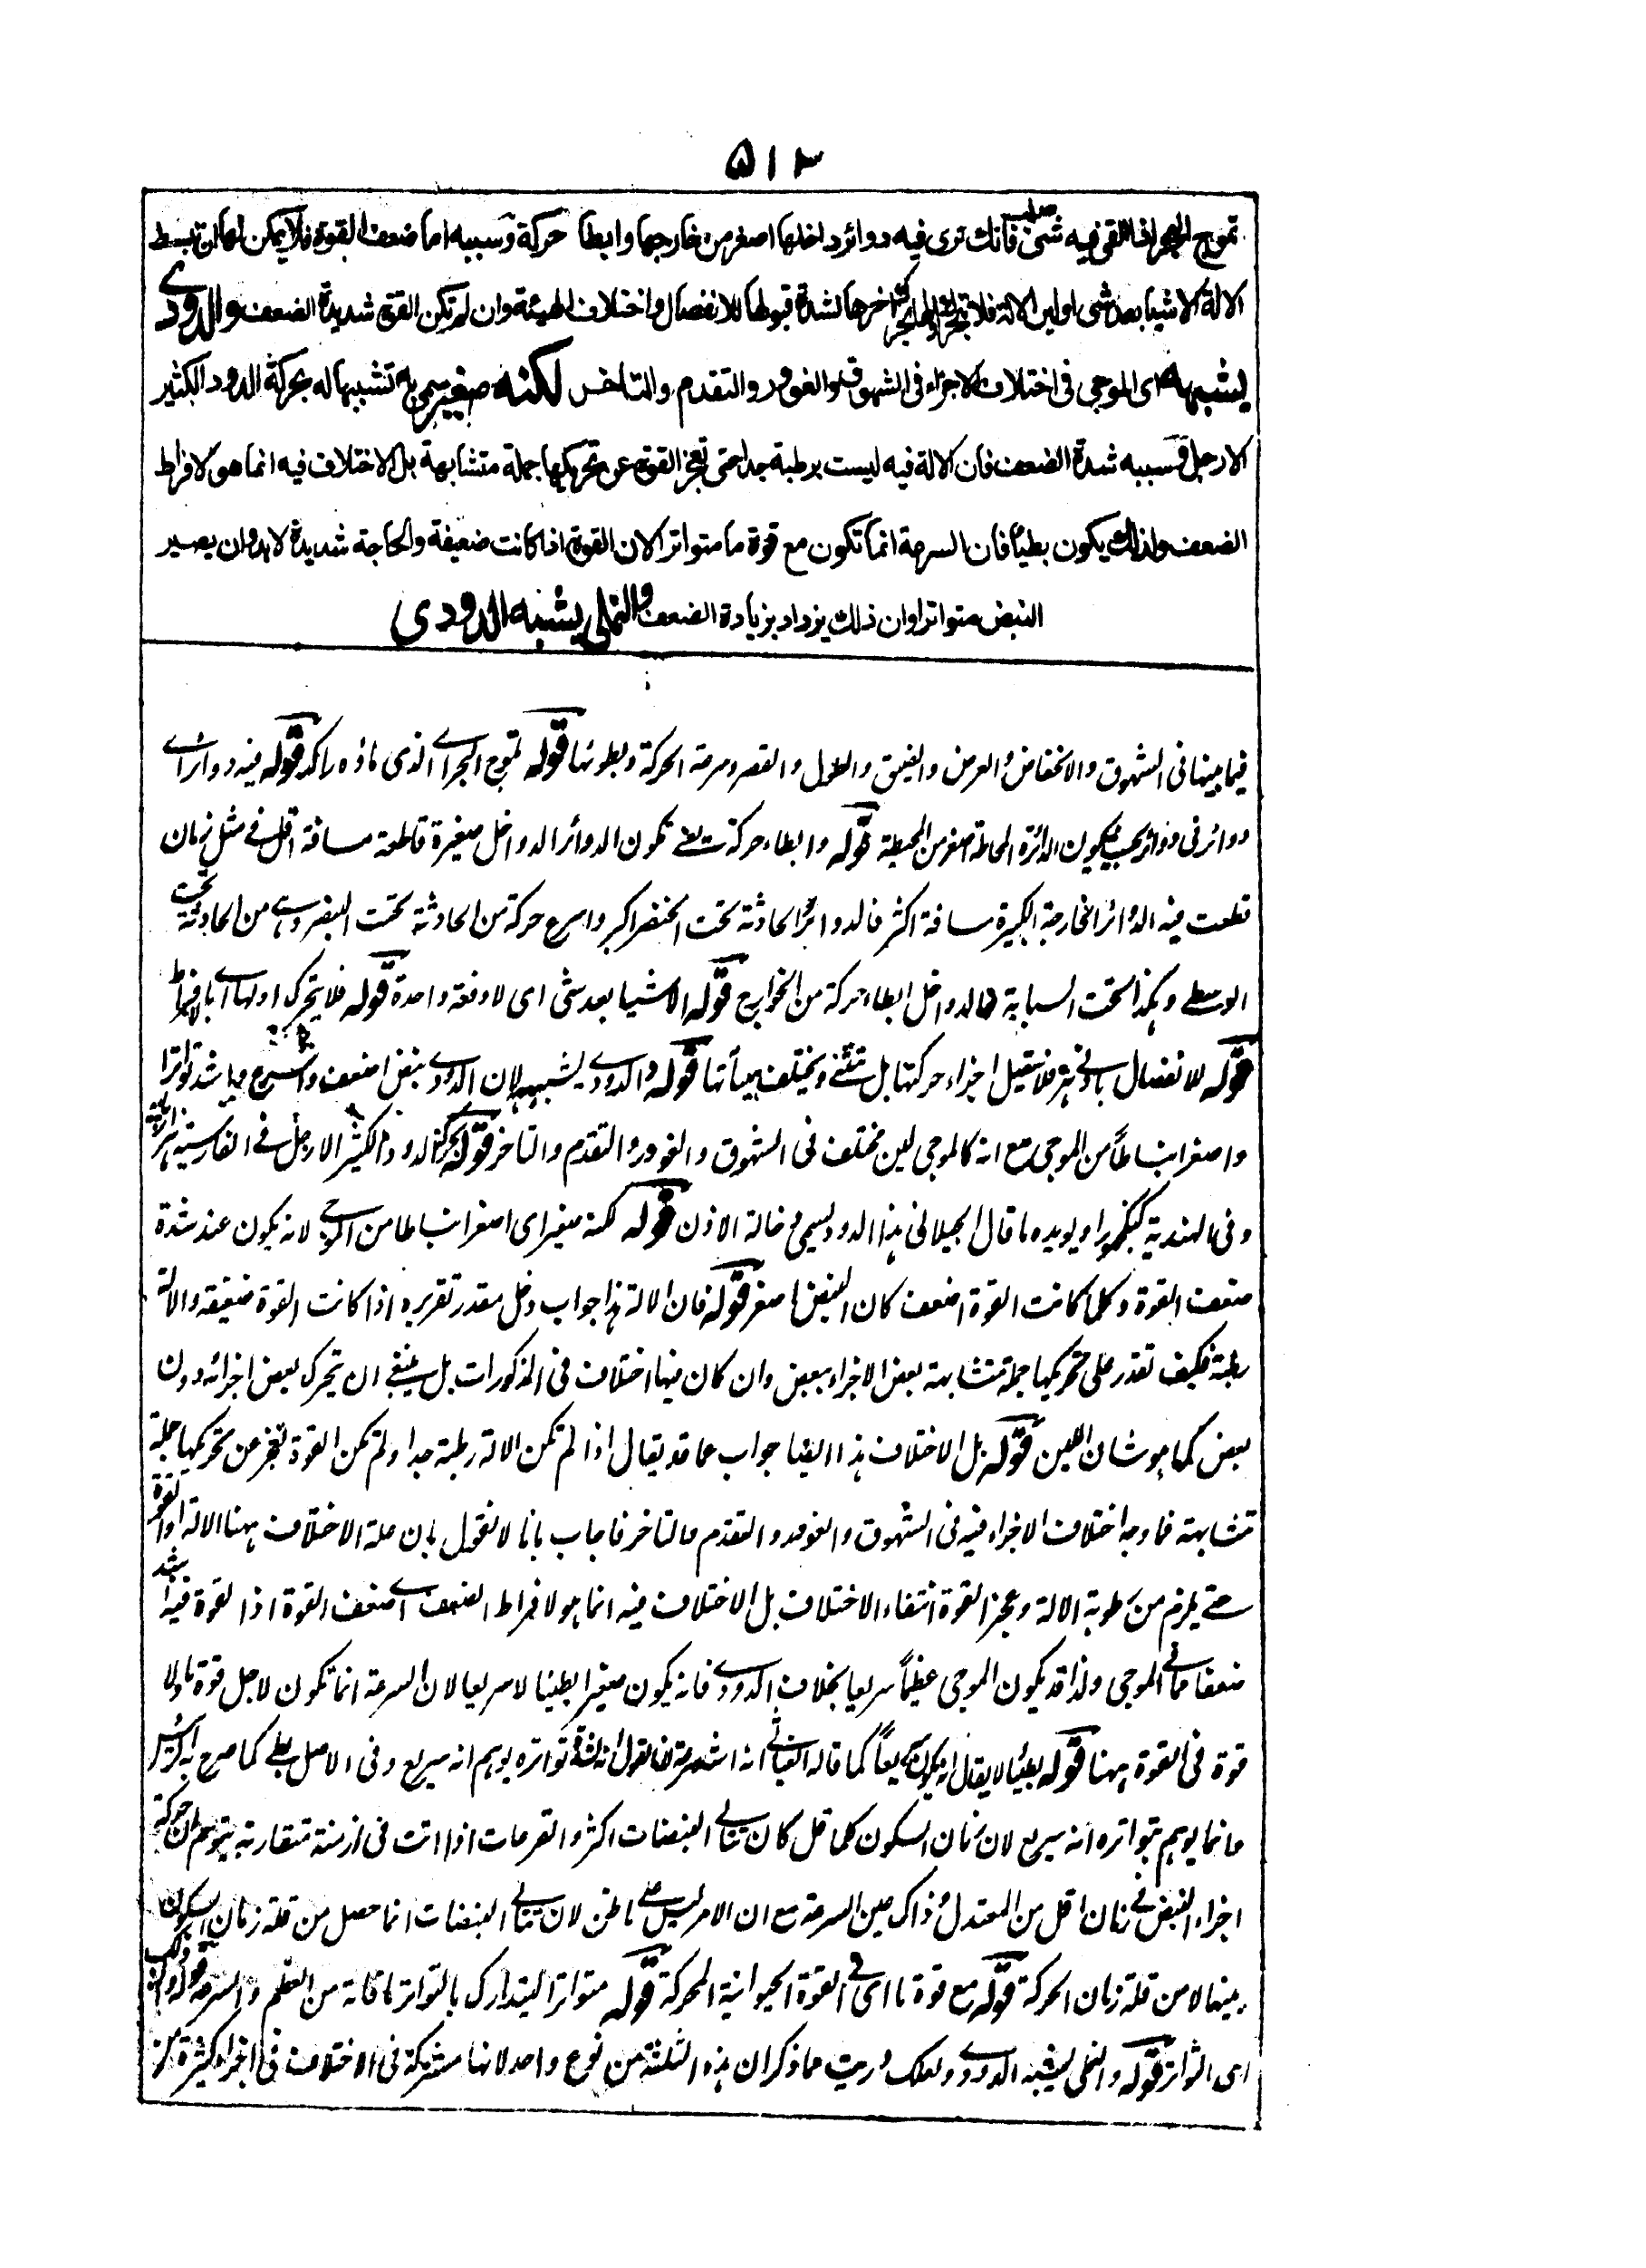 ۵۱۲
تموج البحر اذا القی فیه شئ صلب فانك تری فیه دوائر داخلها اصغر من خارجها وابطأ حركة وسببه اما ضعف القوة فلا یمكن لها ان تبسط
الالة الا شیا بعد شئ او لین الالة فلا یتحرك اولها بتحرك اخرها لشدة قبولها للانفصال واختلاف الهیئة وان لم تكن القوة شدیدة الضعف والدودی
یشبهه ای الموجی فی اختلاف الاجزاء فی الشهوق والغور والتقدم والتاخر لكنه صغیر سمی به تشبیها له بحركة الدود الكثیر
الارجل وسببه شدة الضعف فان الالة فیه لیست برطبة جدا حتی تعجز القوة عن تحریكها جملة متشابهة بل الاختلاف فیه انما هو لافراط
الضعف ولذلك یكون بطیئا فان السرعة انما تكون مع قوة ما متواترا لان القوة اذا كانت ضعیفة والحاجة شدیدة لابد وان یصیر
النبض متواترا وان ذلك یزداد بزیادة الضعف والنملی یشبه الدودی
فیما بینها فی الشهوق والانخفاض والعرض والضیق والطول والقصر وسرعة الحركة وبطوئها قوله تموج البحر ای الذی ماؤه راكد قوله فیه دوائر ای
دوائر فی دوائر بحیث یكون الدائرة المحاطة اصغر من المحیطة قوله وابطاء حركة حتی تكون الدوائر الدواخل صغیرة قاطعة مسافة اقل فی مثل زمان
قطعت فیه الدوائر الخارجة الكبیرة مسافة اكثر فالدوائر الحادثة تحت الخنصر اكبر واسرع حركة من الحادثة تحت البنصر وهی من الحادثة تحت
الوسطی وهكذا تحت السبابة فالدواخل ابطاء حركة من الخوارج قوله الا شیا بعد شئ ای لا دفعة واحدة قوله فلا یتحرك اولها ای
قوله للانفصال بادنی هز فلا تستقیل اجزاء حركتها بل تنثنی ویختلف هیأتها قوله والدودی یشبهه لان الدودی نبض اضعف واسرع واشد تواترا
واصغر انبساطا من الموجی مع انه كالموجی لین مختلف فی الشهوق والغور والتقدم والتاخر قوله بحركة الدود الكثیر الارجل فی الفارسیة
وفی الهندیة كنكهجورا ویویده ما قال الجیلانی هذا الدود یسمی خالة الاذن قوله لكنه صغیر ای اصغر انبساطا من الموجی لانه یكون عند شدة
ضعف القوة وكلما كانت القوة اضعف كان النبض اصغر قوله فان الالة هذا جواب دخل مقدر تقریره اذا كانت القوة ضعیفة والالة
رطبة فكیف تقدر علی تحریكها جملة متشابهة بعض الاجزاء ببعض وان كان فیها اختلاف فی المذكورات بل ینبغی ان یتحرك بعض اجزائه دون
بعض كما هو شان اللین قوله بل الاختلاف هذا ایضا جواب عما قد یقال اذا لم تكن الالة رطبة جدا ولم تكن القوة تعجز عن تحریكها جملة
متشابهة فما وجه اختلاف الاجزاء فیه فی الشهوق والغور والتقدم والتاخر فاجاب بانا لا نقول بان علة الاختلاف ههنا الالة او القوة
حتی یلزم من رطوبة الالة وعجز القوة انتفاء الاختلاف بل الاختلاف فیه انما هو لافراط الضعف ای ضعف القوة اذ القوة فیه اشد
ضعفا مما فی الموجی ولذا قد یكون الموجی عظیما سریعا بخلاف الدودی فانه یكون صغیرا بطیئا لا سریعا لان السرعة انما تكون لاجل قوة ما ولا
قوة فی القوة ههنا قوله بطیئا لا یقال انه یكون سریعا كما قاله انه اشد سرعة لانا نقول ان شدة تواتره یوهم انه سریع وفی الاصل بطئ كما صرح به
وانما یوهم بتواتره انه سریع لان زمان السكون كلما قل كان تتالی النبضات اكثر والقرعات اذا اتت فی ازمنة متقاربة یتوهم ان حركة
اجزاء النبض فی زمان اقل من المعتدل وذاك عین السرعة مع ان الامر لیس علی ما ظن لان تتالی النبضات انما حصل من قلة زمان السكون
بینها لا من قلة زمان الحركة قوله مع قوة ما ای فی القوة الحیوانیة المحركة قوله متواترا لیتدارك بالتواتر ما فاته من العظم والسرعة قوله وان ذلك
ای التواتر قوله والنملی یشبه الدودی ولعلك دریت مما ذكر ان هذه الثلثة من نوع واحد لانها مشتركة فی الاختلاف فی اجزاء كثیرة من